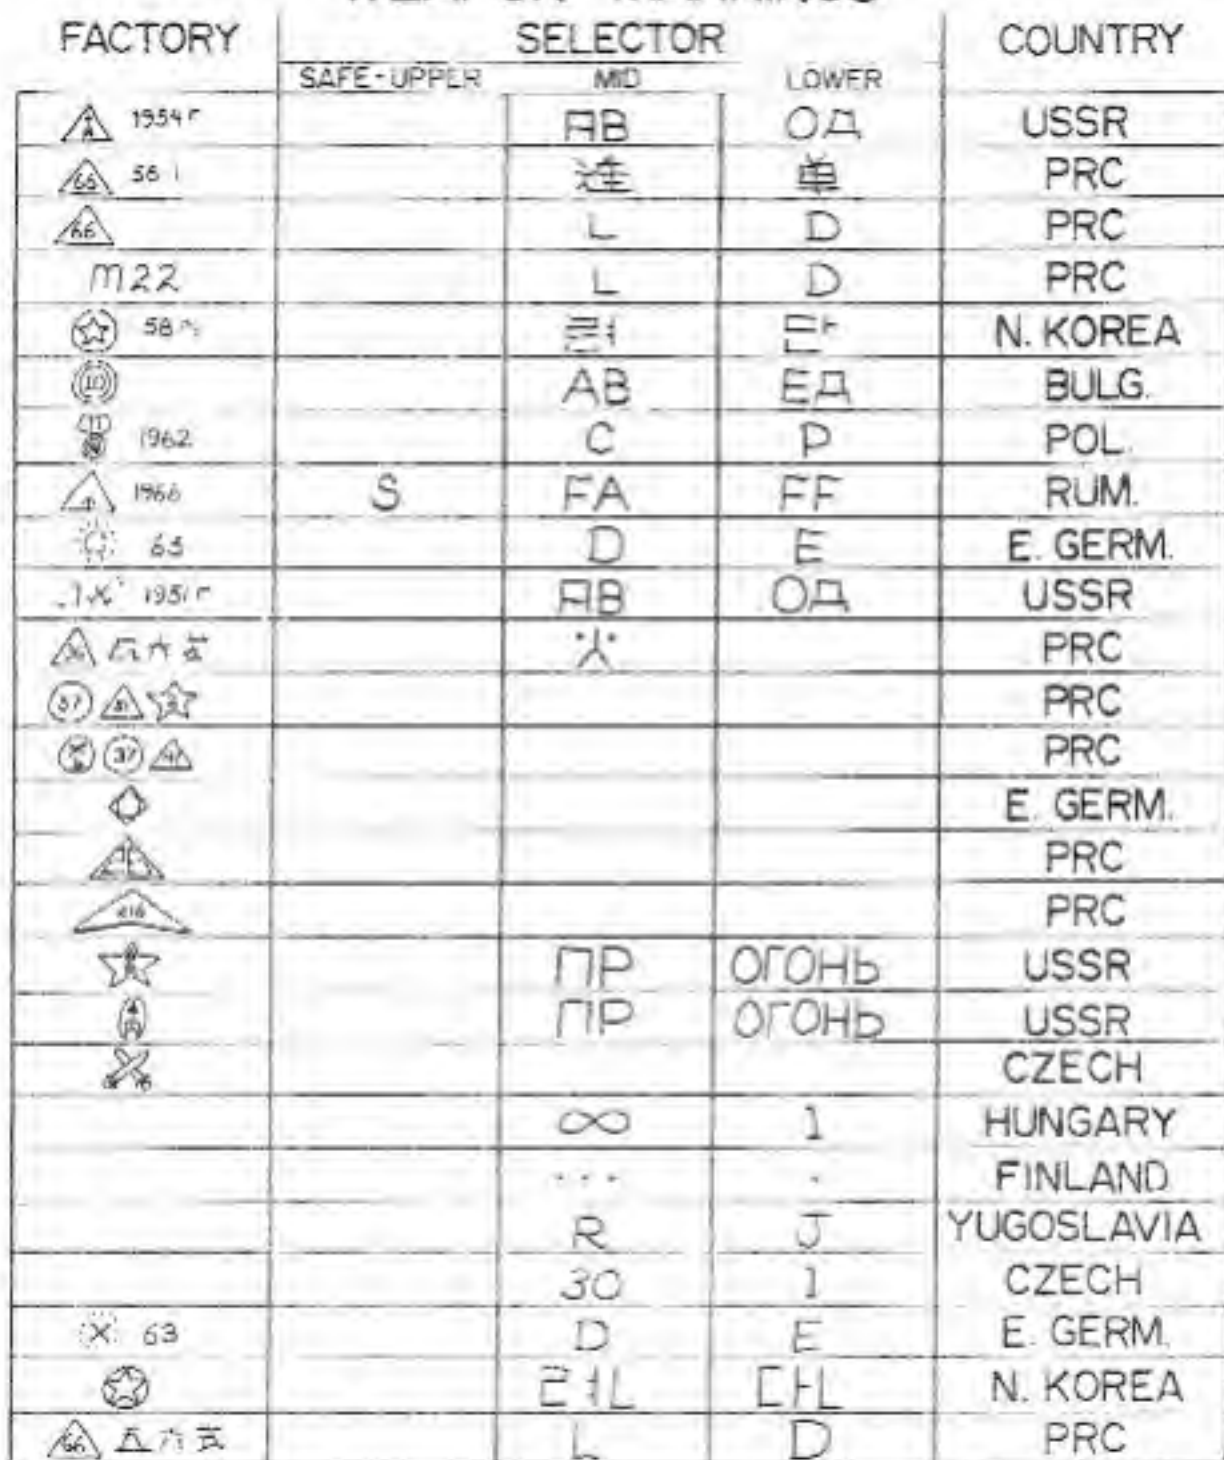 FACTORY SELECTOR COUNTRY
SAFE-UPPER MID LOWER
1954 г АВ ОД USSR
66 56 连 单 PRC
66 L D PRC
M22 L D PRC
58 련 단 N. KOREA
10 АВ ЕД BULG.
11 1962 C P POL.
1966 S FA FF RUM.
63 D E E. GERM.
1951 г АВ ОД USSR
PRC
37 PRC
37 PRC
E. GERM.
PRC
416 PRC
ПР ОГОНЬ USSR
ПР ОГОНЬ USSR
CZECH
∞ 1 HUNGARY
... . FINLAND
R J YUGOSLAVIA
30 1 CZECH
63 D E E. GERM.
N. KOREA
66 五六式 L D PRC